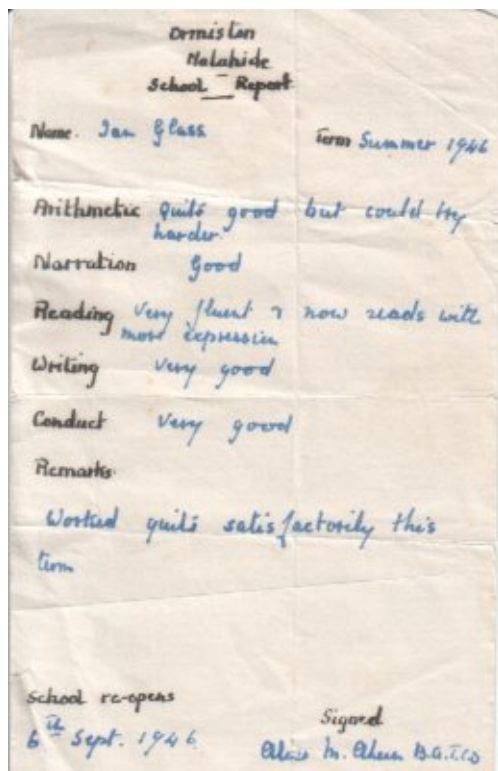 Ormiston
Malahide
School Report
Name. Ian Glass Term Summer 1946
Arithmetic Quite good but could try
harder.
Narration Good
Reading Very fluent & now reads with
more expression
Writing Very good
Conduct Very good
Remarks
Worked quite satisfactorily this
term
School re-opens
6th Sept. 1946
Signed
M.